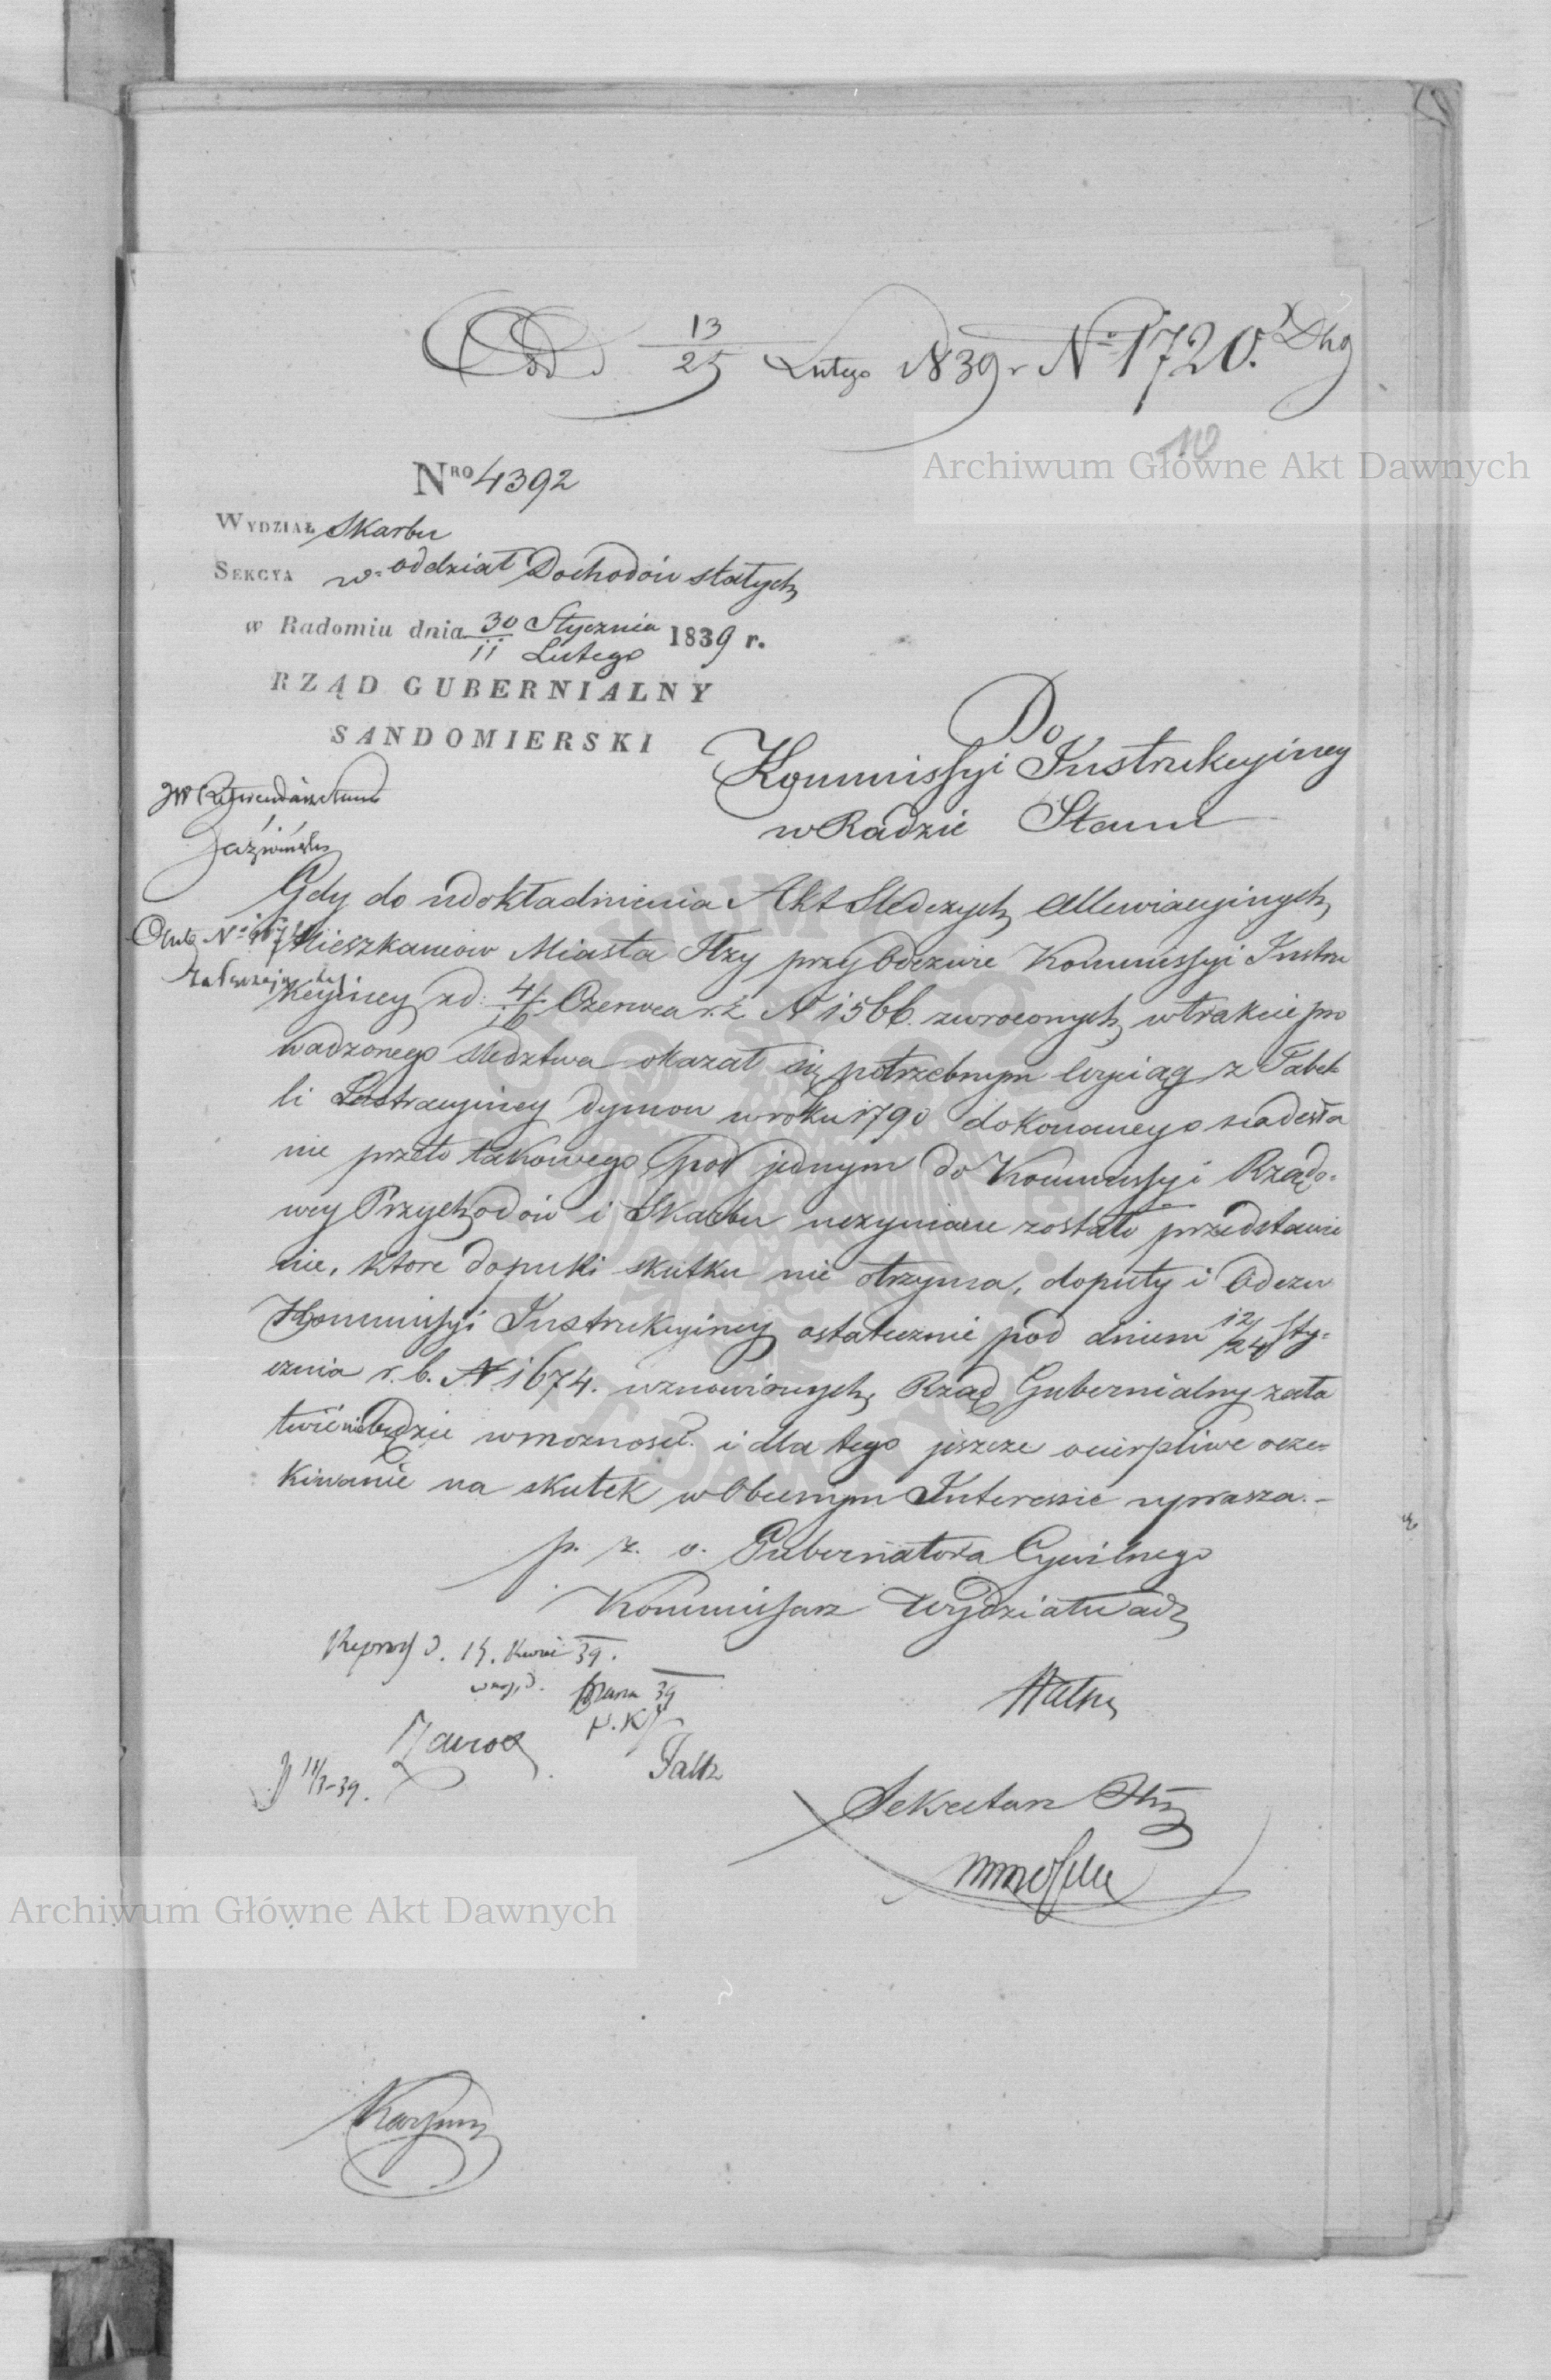 Odd 13/25 Lutego 1839 r N° 1720.
10
Archiwum Główne Akt Dawnych
NRO 4392
WYDZIAŁ Skarbu
SEKCYA w oddział Dochodów stałych
w Radomiu dnia 30 Stycznia / 11 Lutego 1839 r.
RZĄD GUBERNIALNY
SANDOMIERSKI
Do
Kommissyi Instrukcyiney
w Radzie Stanu
JW Referendarz Stanu
Jaźwiński
Gdy do udokładnienia Akt Sledczych Allewiacyinych,
Mieszkancow Miasta Iłży przy Odezwie Kommissyi Instru
kcyiney z d: 4/16 Czerwca r. z N 1566. zwroconych, w trakcie pro
wadzonego sledztwa okazał się potrzebnym wyciąg z Tabel
li Lustracyiney dymow w roku 1790 dokonanego nadesła
nie przeto takowego, pod jednym do Kommissyi Rządo-
wey Przychodów i Skarbu uczynione zostało przedstawie
nie, ktore dopuki skutku nie otrzyma, doputy i Odezw
Kommissyi Instrukcyiney ostatecznie pod dniem 12/24 Sty-
cznia r. b. N 1674. wznowionych, Rząd Gubernialny zała
twić niebędzie w możności. i dla tego jeszcze ocierpliwe ocze-
kiwanie na skutek w Obecnym Interessie uprasza. -
p. z. o. Gubernatora Cywilnego
Kommissarz Wydziału
39.
39
Sekretarz
Archiwum Główne Akt Dawnych